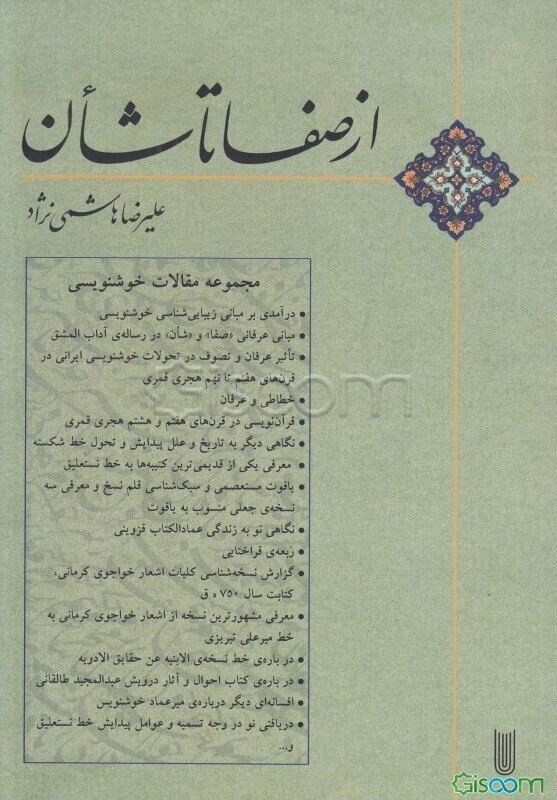 از صفا تا شأن
علیرضا هاشمی نژاد
مجموعه مقالات خوشنویسی
• درآمدی بر مبانی زیبایی‌شناسی خوشنویسی
• مبانی عرفانی «صفا» و «شأن» در رساله‌ی آداب المشق
• تأثیر عرفان و تصوف در تحولات خوشنویسی ایرانی در
قرن‌های هفتم تا نهم هجری قمری
• خطاطی و عرفان
• قرآن‌نویسی در قرن‌های هفتم و هشتم هجری قمری
• نگاهی دیگر به تاریخ و علل پیدایش و تحول خط شکسته
• معرفی یکی از قدیمی‌ترین کتیبه‌ها به خط نستعلیق
• یاقوت مستعصمی و سبک‌شناسی قلم نسخ و معرفی سه
نسخه‌ی جعلی منسوب به یاقوت
• نگاهی نو به زندگی عمادالکتاب قزوینی
• ربعه‌ی قراختایی
• گزارش نسخه‌شناسی کلیات اشعار خواجوی کرمانی،
کتابت سال ۷۵۰ ه ق
• معرفی مشهورترین نسخه از اشعار خواجوی کرمانی به
خط میرعلی تبریزی
• در باره‌ی خط نسخه‌ی الابنیه عن حقایق الادویه
• در باره‌ی کتاب احوال و آثار درویش عبدالمجید طالقانی
• افسانه‌ای دیگر درباره‌ی میرعماد خوشنویس
• دریافتی نو در وجه تسمیه و عوامل پیدایش خط نستعلیق
و...
Gisoom
Gisoom